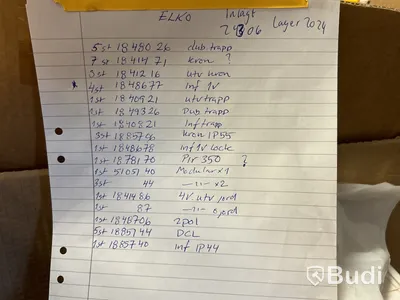 ELKO Inlagt Lager 2024
24 06
5st 18 480 26 dub.trapp
7st 18 414 71 kron ?
3st 18 412 16 utv kron
4st 18 486 77 inf 1v
1st 18 409 21 utv trapp
1st 18 493 26 Dub trapp
1st 18 408 21 Inf trapp
3st 18 857 06 kron IP55
1st 18 486 78 inf 1v lock
1st 18 781 70 Pir 350 ?
1st 51 051 40 Modular x1
3st 44 —"— x2
1st 18 414 86 4V utv jord
1st 87 —"— ojord
1st 18 467 06 2pol
5st 18 857 44 DCL
1st 18 857 40 inf IP44
Budi